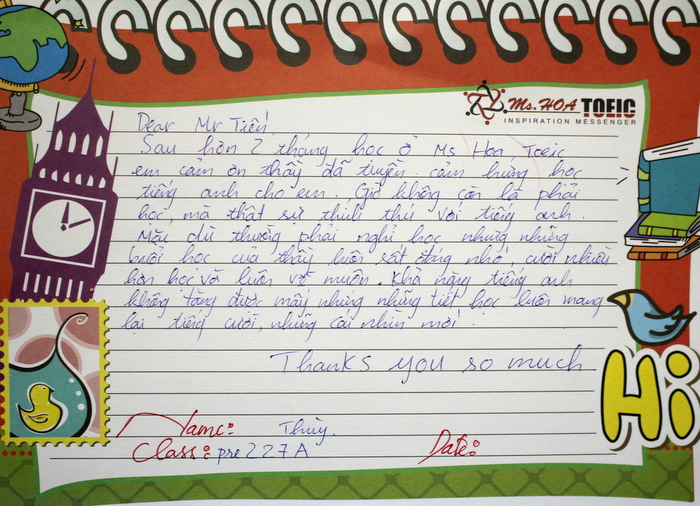 Ms.HOA TOEIC
INSPIRATION MESSENGER
Dear Mr Tiến,
Sau hơn 2 tháng học ở Ms Hoa Toeic
em cảm ơn thầy đã truyền cảm hứng học
tiếng anh cho em. Giờ không còn là phải
học, mà thật sự thích thú với tiếng anh.
Mặc dù thường phải nghỉ học nhưng những
buổi học của thầy luôn rất đáng nhớ, cười nhiều
hơn học và luôn về muộn. Khả năng tiếng anh
không tăng được mấy nhưng những tiết học luôn mang
lại tiếng cười, những cái nhìn mới.
Thanks you so much
Name: Thùy.
Class: pre 227A Date:
Hi